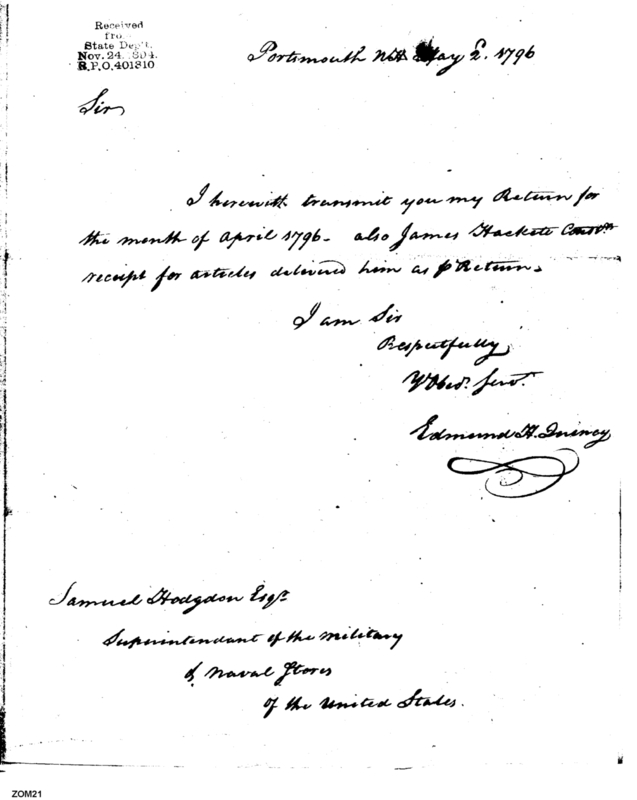 Received
from
State Dep't.
Nov. 24. 1894.
R.P.O. 401310
Portsmouth NH May 2. 1796
Sir
I herewith transmit you my Return for
the month of April 1796. also James Hackett Constr
receipt for articles delivered him as ⅌ Return.
I am Sir
Respectfully
Y Obed. Servt.
Edmund H. Quincy
Samuel Hodgdon Esqr
Superintendant of the Military
& Naval Stores
of the United States.
ZOM21